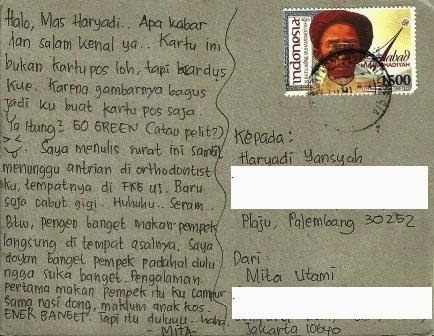 Halo, Mas Haryadi.. Apa kabar
dan salam kenal ya.. Kartu ini
bukan kartu pos loh, tapi kardus
kue. Karena gambarnya bagus
jadi ku buat kartu pos saja.
Ya Hung? GO GREEN (atau pelit?)
>_<. Saya menulis surat ini sambil
menunggu antrian di orthodontist
ku, tempatnya di FKG UI. Baru
saja cabut gigi. Huhuhu.. Seram.
Btw, pengen banget makan pempek
langsung di tempat asalnya. Saya
doyan banget pempek padahal dulu
ngga suka banget. Pengalaman
pertama makan pempek itu ku campur
sama nasi dong, maklum anak kos.
ENEK BANGET. Tapi itu duluuu.. haha.
- MITA-
indonesia
Abad
MUHAMMADIYAH
1500
Kepada:
Haryadi Yansyah
Plaju, Palembang 30252
Dari:
Mita Utami
Jakarta 10640